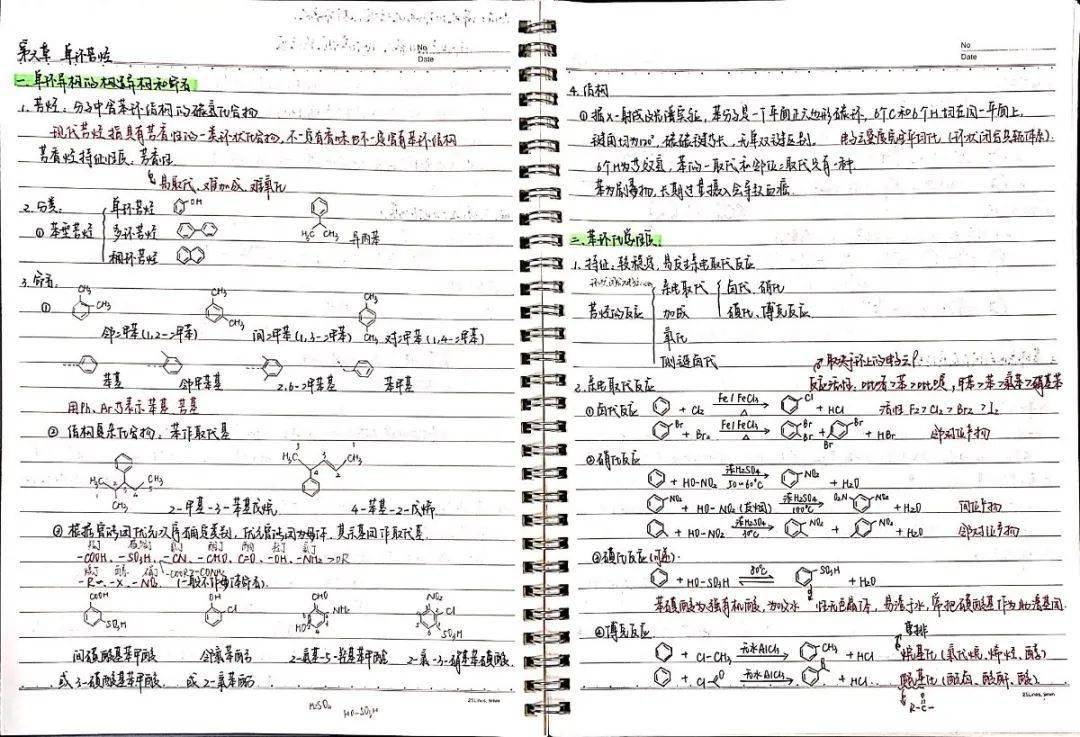 No
Date
第六章 单环芳烃
一.单环芳烃的构造异构和命名
1.芳烃:分子中含苯环结构的碳氢化合物
现代芳烃指具有芳香性的一类环状化合物,不一定有香味也不一定含有苯环结构
芳香烃特征性质:芳香性
易取代、难加成、难氧化
2.分类:
① 苯型芳烃
单环芳烃
OH
多环芳烃
稠环芳烃
H₃C CH₃ 异丙苯
3.命名:
①
CH₃ CH₃
CH₃ CH₃
CH₃ CH₃
邻二甲苯(1,2-二甲苯) 间二甲苯(1,3-二甲苯) 对二甲苯(1,4-二甲苯)
苯基 邻甲苯基 2,6-二甲苯基 苯甲基
用Ph、Ar表示苯基 芳基
② 结构复杂化合物,苯作取代基
H₃C CH₃ CH₃
H₃C CH₃
2-甲基-3-苯基戊烷 4-苯基-2-戊烯
③ 根据官能团优先次序确定类别,优先官能团为母体,其余基团作取代基
-COOH、-SO₃H、-CN、-CHO、C=O、-OH、-NH₂>OR
-R、-X、-NO₂
COOH SO₃H
OH Cl
CHO NH₂ HO
NO₂ Cl SO₃H
间磺酸基苯甲酸 邻氯苯酚 2-氨基-5-羟基苯甲醛 2-氯-3-硝基苯磺酸
或 3-磺酸基苯甲酸 或 2-氯苯酚
H₂SO₄ HO-SO₃H
No
Date
4.结构
① 据X-射线或光谱实验,苯分子是一个平面正六边形碳环,6个C和6个H均在同一平面上
键角均为120°,碳碳键等长,无单双键区别。 电子云密度完全平均化(环状闭合共轭体系)
6个H为等效氢,苯的一取代和邻位二取代只有一种
苯为剧毒物,长期过量摄入会导致血癌
二.苯环化学性质
1.特征:较稳定,易发生亲电取代反应
芳烃的反应
亲电取代
卤代、硝化
加成
磺化、傅克反应
氧化
侧链卤代
取决于环上的电子云ρ
2.亲电取代反应
① 卤代反应 + Cl₂ Fe/FeCl₃ △ Cl + HCl 活性 F₂>Cl₂>Br₂>I₂
Br + Br₂ Fe/FeCl₃ △ Br Br + Br Br + HBr 邻对位产物
②硝化反应
+ HO-NO₂ 浓H₂SO₄ 50-60℃ NO₂ + H₂O
NO₂ + HO-NO₂(发烟) 浓H₂SO₄ 100℃ O₂N NO₂ + H₂O 间位产物
+ HO-NO₂ 浓H₂SO₄ 30℃ NO₂ + NO₂ + H₂O 邻对位产物
③磺化反应(可逆)
+ HO-SO₃H 80℃ SO₃H + H₂O
苯磺酸为强有机酸, 易溶于水,常把磺酸基作为助溶基团
④傅克反应
重排
+ Cl-CH₃ 无水AlCl₃ CH₃ + HCl 烷基化(氯代烷、烯烃、醇)
+ Cl 无水AlCl₃ + HCl 酰基化(酰卤、酸酐、酸)
R-C- O